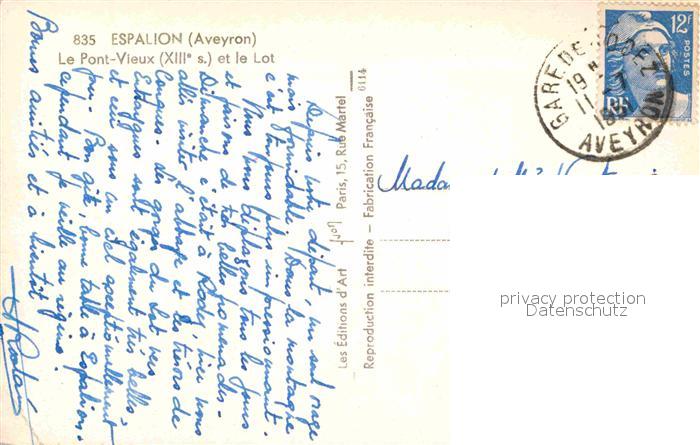 835 ESPALION (Aveyron)
Le Pont-Vieux (XIIIe s.) et le Lot
Depuis votre départ, un seul orage
mais formidable. Dans la montagne
c'est toujours plus impressionnant.
Nous nous déplaçons tous les jours
et faisons de très belles promenades.
Dimanche c'était à Rodez, hier nous
allés visiter l'abbaye et les trésors de
Conques. Les gorges du Lot vers
Estaing sont également très belles
et ceci sous un ciel exceptionnellement
pur. Bon gîte, bonne table à Espalion.
Cependant je veille au régime!
Bonnes amitiés et à bientôt
Les Éditions d'Art Yvon Paris, 15, Rue Martel
Reproduction interdite - Fabrication Française
6114
Madame
12F
POSTES
RF
GARE DE RODEZ
19 H
11 -7
AVEYRON
privacy protection
Datenschutz